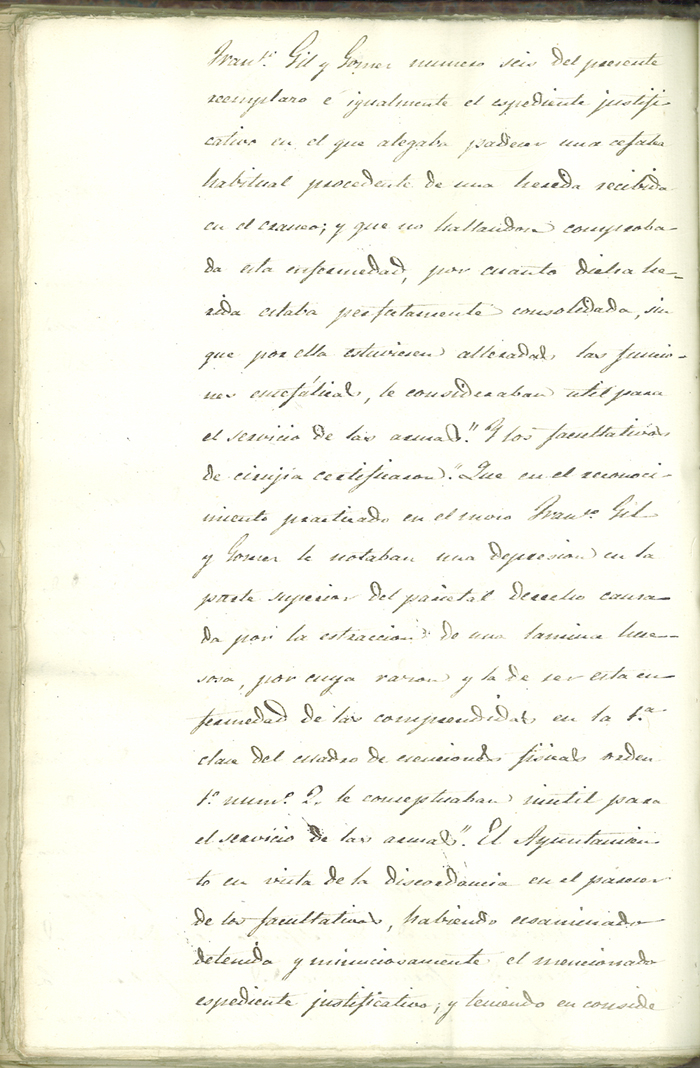 Fran.co Gil y Gomez numero seis del presente
reemplazo é igualmente el espediente justifi
cativo en el que alegaba padecer una cefalea
habitual procedente de una hereda recibida
en el craneo; y que no hallandose comproba-
da esta enfermedad, por cuanto dicha he-
rida estaba perfectamente consolidada, sin
que por ella estuviesen alteradas las funcio-
nes encefálicas, le consideraban util para
el servicio de las armas." Y los facultativos
de cirujia certificaron: "Que en el reconoci-
miento practicado en el mozo Fran.co Gil
y Gomez le notaban una depresion en la
parte superior del parietal derecho causa-
da por la estraccion de una lamina hue-
sosa, por cuya razon y la de ser esta en-
fermedad de las comprendidas en la 1.ª
clase del cuadro de esenciones fisicas orden
1.º num.º 2. le conceptuaban inutil para
el servicio de las armas". El Ayuntamien-
to en vista de la discordancia en el parecer
de los facultativos, habiendo ecsaminado
detenida y minuciosamente el mencionado
espediente justificativo; y teniendo en conside